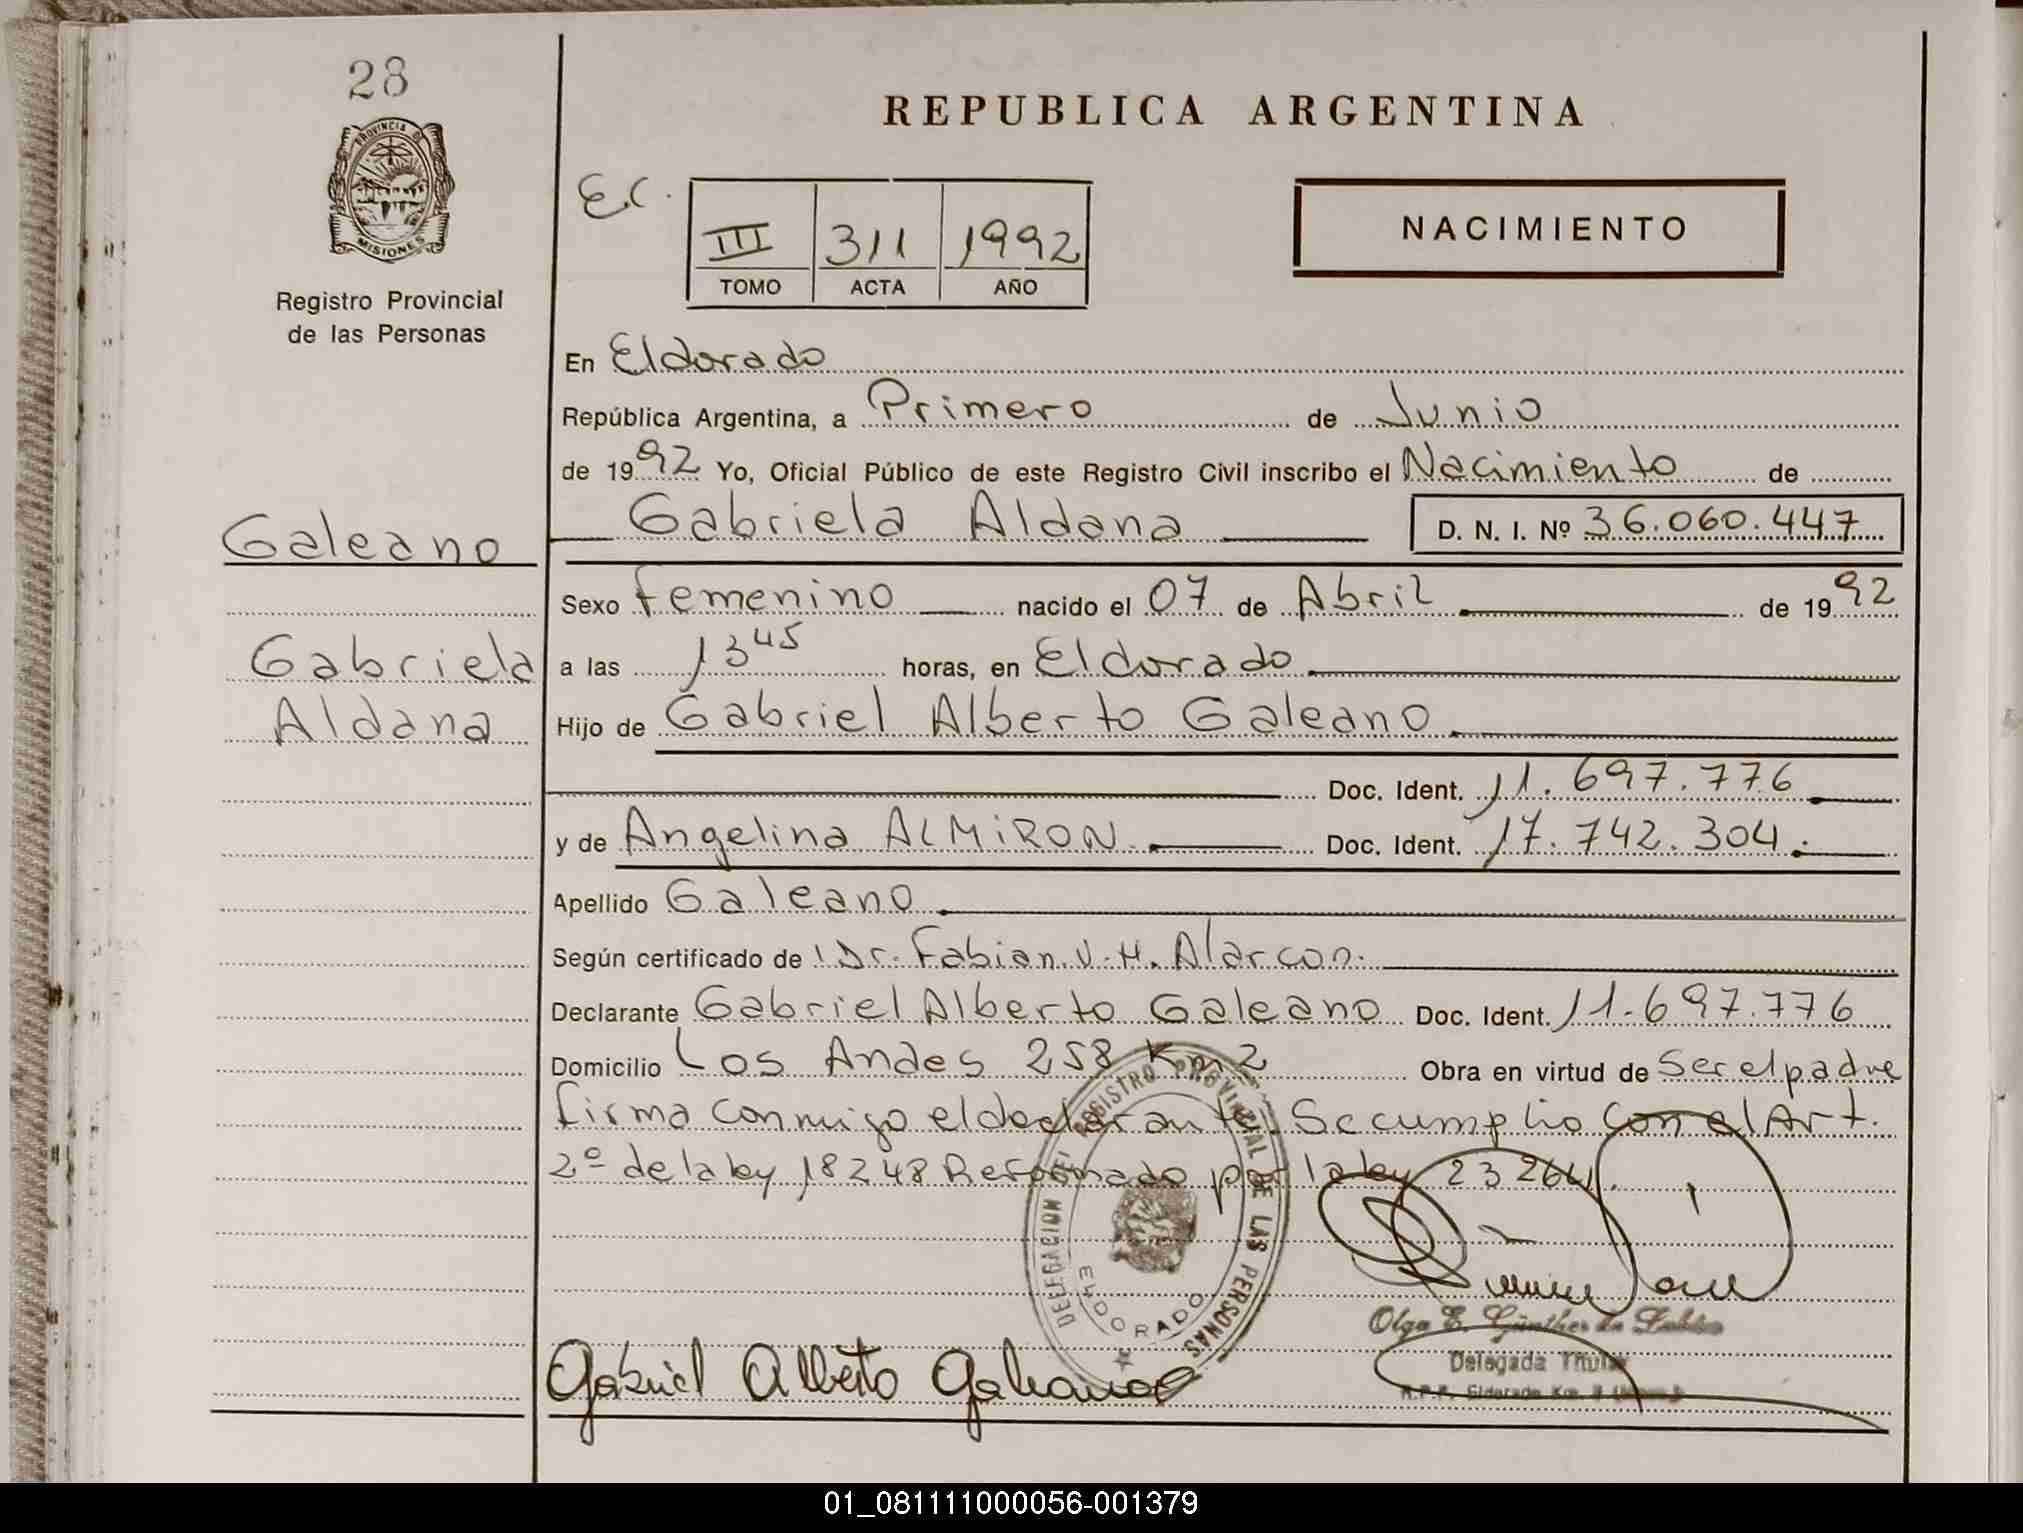 28
PROVINCIA D
MISIONES
Registro Provincial
de las Personas
Galeano
Gabriela
Aldana
REPUBLICA ARGENTINA
E.C.
III 311 1992
TOMO ACTA AÑO
NACIMIENTO
En Eldorado
República Argentina, a Primero de Junio
de 1992 Yo, Oficial Público de este Registro Civil inscribo el Nacimiento de
Gabriela Aldana D. N. I. Nº 36.060.447
Sexo Femenino nacido el 07 de Abril de 1992
a las 13 45 horas, en Eldorado
Hijo de Gabriel Alberto Galeano
Doc. Ident. 11.697.776
y de Angelina ALMIRON Doc. Ident. 17.742.304.
Apellido Galeano
Según certificado de Dr. Fabian V. H. Alarcon.
Declarante Gabriel Alberto Galeano Doc. Ident. 11.697.776
Domicilio Los Andes 258 Km 2 Obra en virtud de Ser el padre
firma conmigo el declarante. Se cumplio con el Art.
2º de la ley 18248 Reformado por la ley 23264.
DELEGACION DEL REGISTRO PROVINCIAL DE LAS PERSONAS
ELDORADO
Olga E. Günther de
Delegada Titular
R.P.P. Eldorado Km. 9
Gabriel Alberto Galeano
01_081111000056-001379